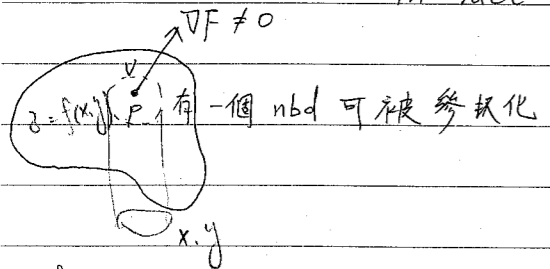 ∇F ≠ 0
V
z = f(x,y) P 有一個 nbd 可被參數化
x, y